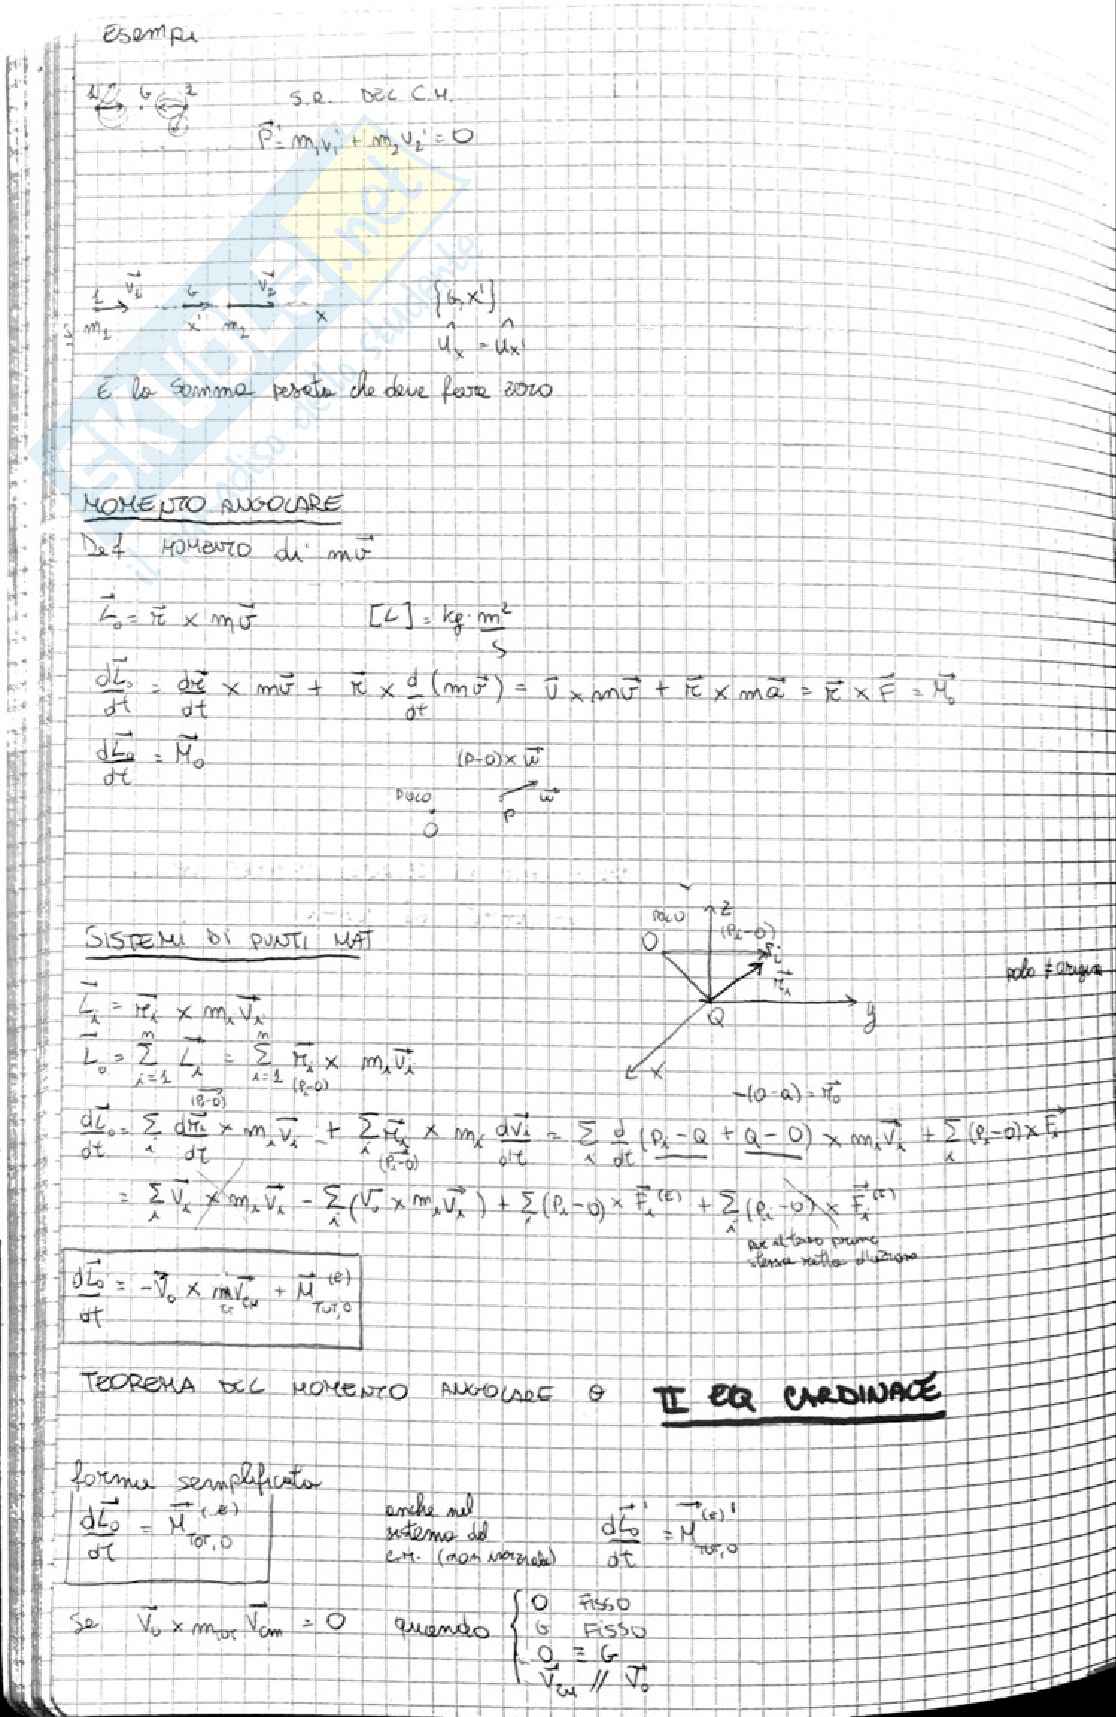 Esempi
1 G 2 S.R. DEL C.M.
P⃗' = m₁v₁' + m₂v₂' = 0
SKUOLA.net
1 v⃗₁ G v⃗₂ {G, x'}
m₁ x' m₂ x û_x = û_x'
È la somma pesata che deve fare zero
MOMENTO ANGOLARE
Def MOMENTO di mv⃗
L⃗₀ = r⃗ × mv⃗ [L] = kg · m²/s
dL⃗₀/dt = dr⃗/dt × mv⃗ + r⃗ × d/dt (mv⃗) = v⃗ × mv⃗ + r⃗ × ma⃗ = r⃗ × F⃗ = M⃗₀
dL⃗₀/dt = M⃗₀ (P-O) × w⃗
POLO O P w⃗
SISTEMI DI PUNTI MAT
POLO O z (Pᵢ-O) Pᵢ r⃗ᵢ Q y x
polo ≠ origine
L⃗ᵢ = r⃗ᵢ × mᵢv⃗ᵢ
L⃗₀ = Σᵢ₌₁ⁿ L⃗ᵢ = Σᵢ₌₁ⁿ r⃗ᵢ × mᵢv⃗ᵢ
(Pᵢ-O)
-(O-Q) = r⃗₀
(Pᵢ-O)
dL⃗₀/dt = Σᵢ dr⃗ᵢ/dt × mᵢv⃗ᵢ + Σᵢ r⃗ᵢ × mᵢ dv⃗ᵢ/dt = Σᵢ d/dt (Pᵢ - Q + Q - O) × mᵢv⃗ᵢ + Σᵢ (Pᵢ-O) × F⃗ᵢ
(Pᵢ-O)
= Σᵢ v⃗ᵢ × mᵢv⃗ᵢ - Σᵢ (v⃗₀ × mᵢv⃗ᵢ) + Σᵢ (Pᵢ-O) × F⃗ᵢ^(E) + Σᵢ (Pᵢ-O) × F⃗ᵢ^(E)
stessa retta d'azione
dL⃗₀/dt = -v⃗₀ × mv⃗_CM + M⃗_TOT,O^(E)
TEOREMA DEL MOMENTO ANGOLARE o II EQ CARDINALE
forma semplificata
dL⃗₀/dt = M⃗_TOT,O^(E) anche nel
sistema del
C.M. (non inerziale) dL⃗₀'/dt = M⃗_TOT,O^(E)'
se v⃗₀ × m_tot v⃗_cm = 0 quando { O FISSO
G FISSO
O ≡ G
v⃗_CM // v⃗₀